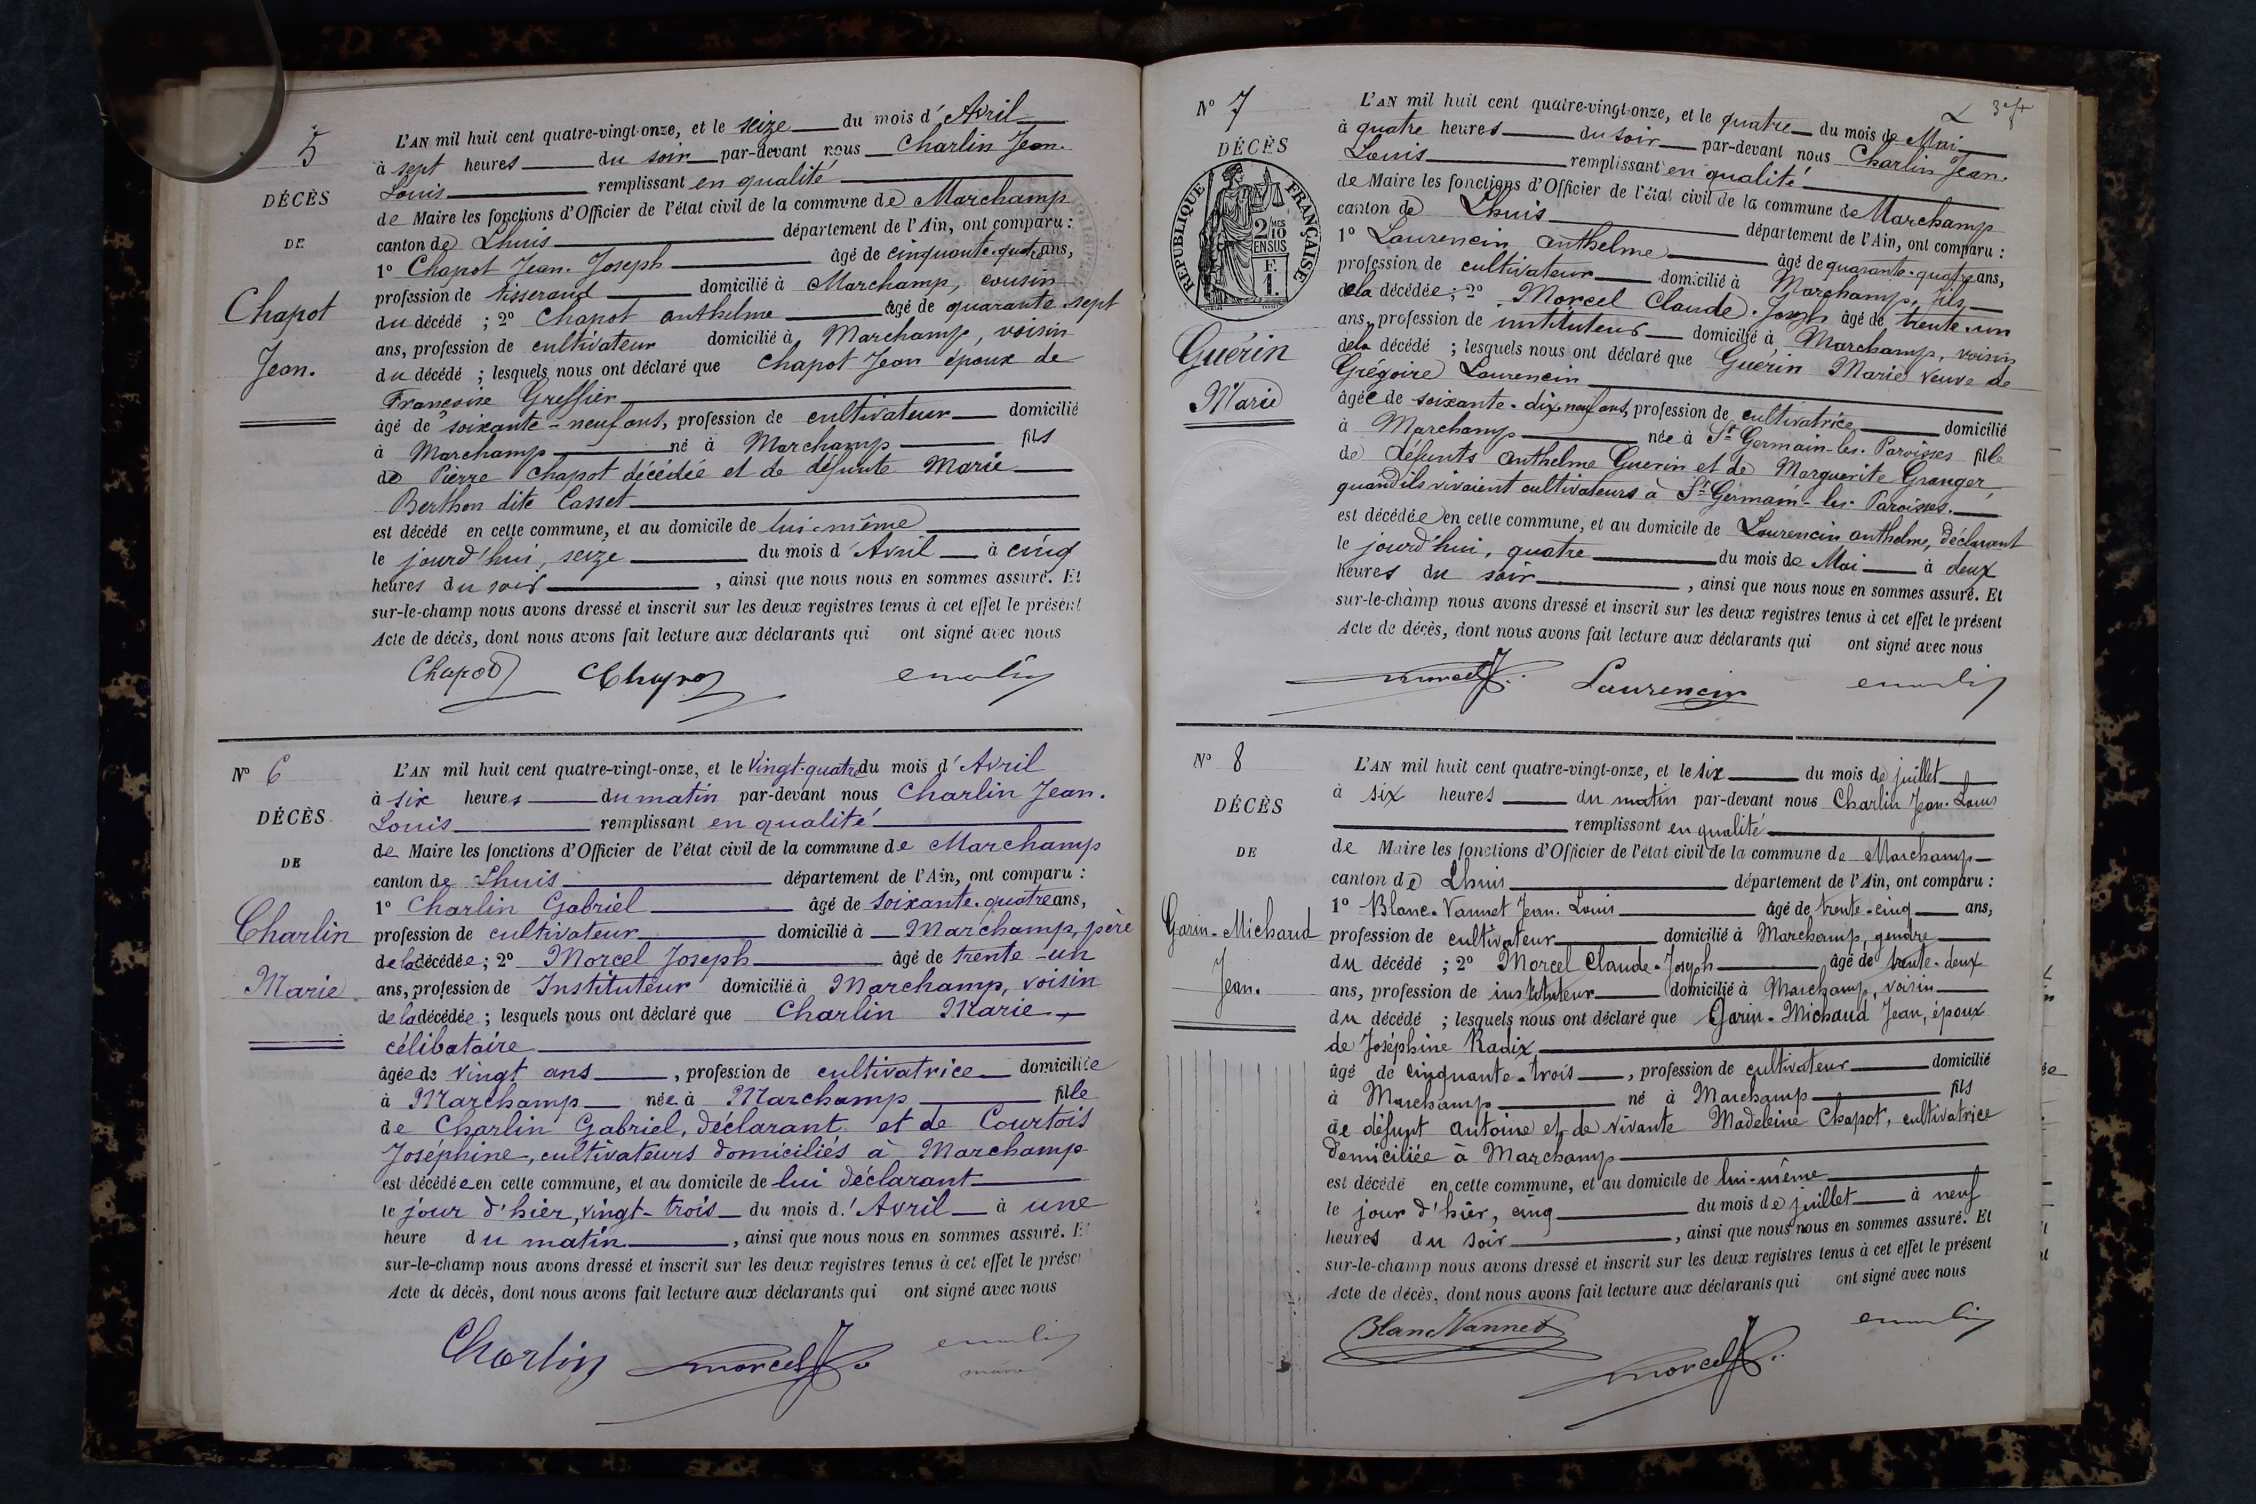 5
DÉCÈS
DE
Chapot
Jean.
L'AN mil huit cent quatre-vingt-onze, et le seize du mois d'Avril
à sept heures du soir par-devant nous Charlin Jean.
Louis remplissant en qualité
de Maire les fonctions d'Officier de l'état civil de la commune de Marchamp
canton de Lhuis département de l'Ain, ont comparu :
1° Chapot Jean. Joseph âgé de cinquante-quatre ans,
profession de tisserand domicilié à Marchamp, cousin
du décédé ; 2° Chapot anthelme âgé de quarante sept
ans, profession de cultivateur domicilié à Marchamp, voisin
du décédé ; lesquels nous ont déclaré que Chapot Jean époux de
Françoise Greffier
âgé de soixante-neuf ans, profession de cultivateur domicilié
à Marchamp né à Marchamp fils
de Pierre Chapot décédée et de défunte Marie
Berthon dite Casset
est décédé en cette commune, et au domicile de lui-même
le jourd'hui, seize du mois d'Avril à cinq
heures du soir, ainsi que nous nous en sommes assuré. Et
sur-le-champ nous avons dressé et inscrit sur les deux registres tenus à cet effet le présent
Acte de décès, dont nous avons fait lecture aux déclarants qui ont signé avec nous
Chapot Chapot
N° 6
DÉCÈS
DE
Charlin
Marie
L'AN mil huit cent quatre-vingt-onze, et le vingt-quatre du mois d'Avril
à six heures du matin par-devant nous Charlin Jean.
Louis remplissant en qualité
de Maire les fonctions d'Officier de l'état civil de la commune de Marchamp
canton de Lhuis département de l'Ain, ont comparu :
1° Charlin Gabriel âgé de soixante-quatre ans,
profession de cultivateur domicilié à Marchamp, père
de la décédée ; 2° Morcel Joseph âgé de trente-un
ans, profession de Instituteur domicilié à Marchamp, voisin
de la décédée ; lesquels nous ont déclaré que Charlin Marie
célibataire
âgée de vingt ans, profession de cultivatrice domiciliée
à Marchamp née à Marchamp fille
de Charlin Gabriel, déclarant et de Courtois
Joséphine, cultivateurs domiciliés à Marchamp
est décédée en cette commune, et au domicile de lui déclarant
le jour d'hier, vingt-trois du mois d'Avril à une
heure du matin, ainsi que nous nous en sommes assuré. Et
sur-le-champ nous avons dressé et inscrit sur les deux registres tenus à cet effet le prése
Acte de décès, dont nous avons fait lecture aux déclarants qui ont signé avec nous
Charlin Morcel J
N° 7
DÉCÈS
RÉPUBLIQUE FRANÇAISE
2/10 EN SUS
F. 1.
Guérin
Marie
L'AN mil huit cent quatre-vingt-onze, et le quatre du mois de Mai
à quatre heures du soir par-devant nous Charlin Jean.
Louis remplissant en qualité
de Maire les fonctions d'Officier de l'état civil de la commune de Marchamp
canton de Lhuis département de l'Ain, ont comparu :
1° Laurencin anthelme âgé de quarante-quatre ans,
profession de cultivateur domicilié à Marchamp, fils
de la décédée ; 2° Morcel Claude. Joseph âgé de trente-un
ans, profession de instituteur domicilié à Marchamp, voisin
de la décédé ; lesquels nous ont déclaré que Guérin Marie veuve de
Grégoire Laurencin
âgée de soixante-dix-neuf ans, profession de cultivatrice domicilié
à Marchamp née à St Germain-les-Paroisses fille
de défunts anthelme Guerin et de Marguerite Granger,
quand ils vivaient cultivateurs à St Germain-les-Paroisses.
est décédée en cette commune, et au domicile de Laurencin anthelme, déclarant
le jourd'hui, quatre du mois de Mai à deux
heures du soir, ainsi que nous nous en sommes assuré. Et
sur-le-champ nous avons dressé et inscrit sur les deux registres tenus à cet effet le présent
Acte de décès, dont nous avons fait lecture aux déclarants qui ont signé avec nous
Morcel J Laurencin
N° 8
DÉCÈS
DE
Garin-Michaud
Jean.
L'AN mil huit cent quatre-vingt-onze, et le six du mois de juillet
à six heures du matin par-devant nous Charlin Jean-Louis
remplissant en qualité
de Maire les fonctions d'Officier de l'état civil de la commune de Marchamp
canton de Lhuis département de l'Ain, ont comparu :
1° Blanc-Vannet Jean. Louis âgé de trente-cinq ans,
profession de cultivateur domicilié à Marchamp, gendre
du décédé ; 2° Morcel Claude-Joseph âgé de trente-deux
ans, profession de instituteur domicilié à Marchamp, voisin
du décédé ; lesquels nous ont déclaré que Garin-Michaud Jean, époux
de Joséphine Radix
âgé de cinquante-trois, profession de cultivateur domicilié
à Marchamp né à Marchamp fils
de défunt antoine et de vivante Madeleine Chapot, cultivatrice
domiciliée à Marchamp
est décédé en cette commune, et au domicile de lui-même
le jour d'hier, cinq du mois de juillet à neuf
heures du soir, ainsi que nous nous en sommes assuré. Et
sur-le-champ nous avons dressé et inscrit sur les deux registres tenus à cet effet le présent
Acte de décès, dont nous avons fait lecture aux déclarants qui ont signé avec nous
Blanc Vannet
Morcel J